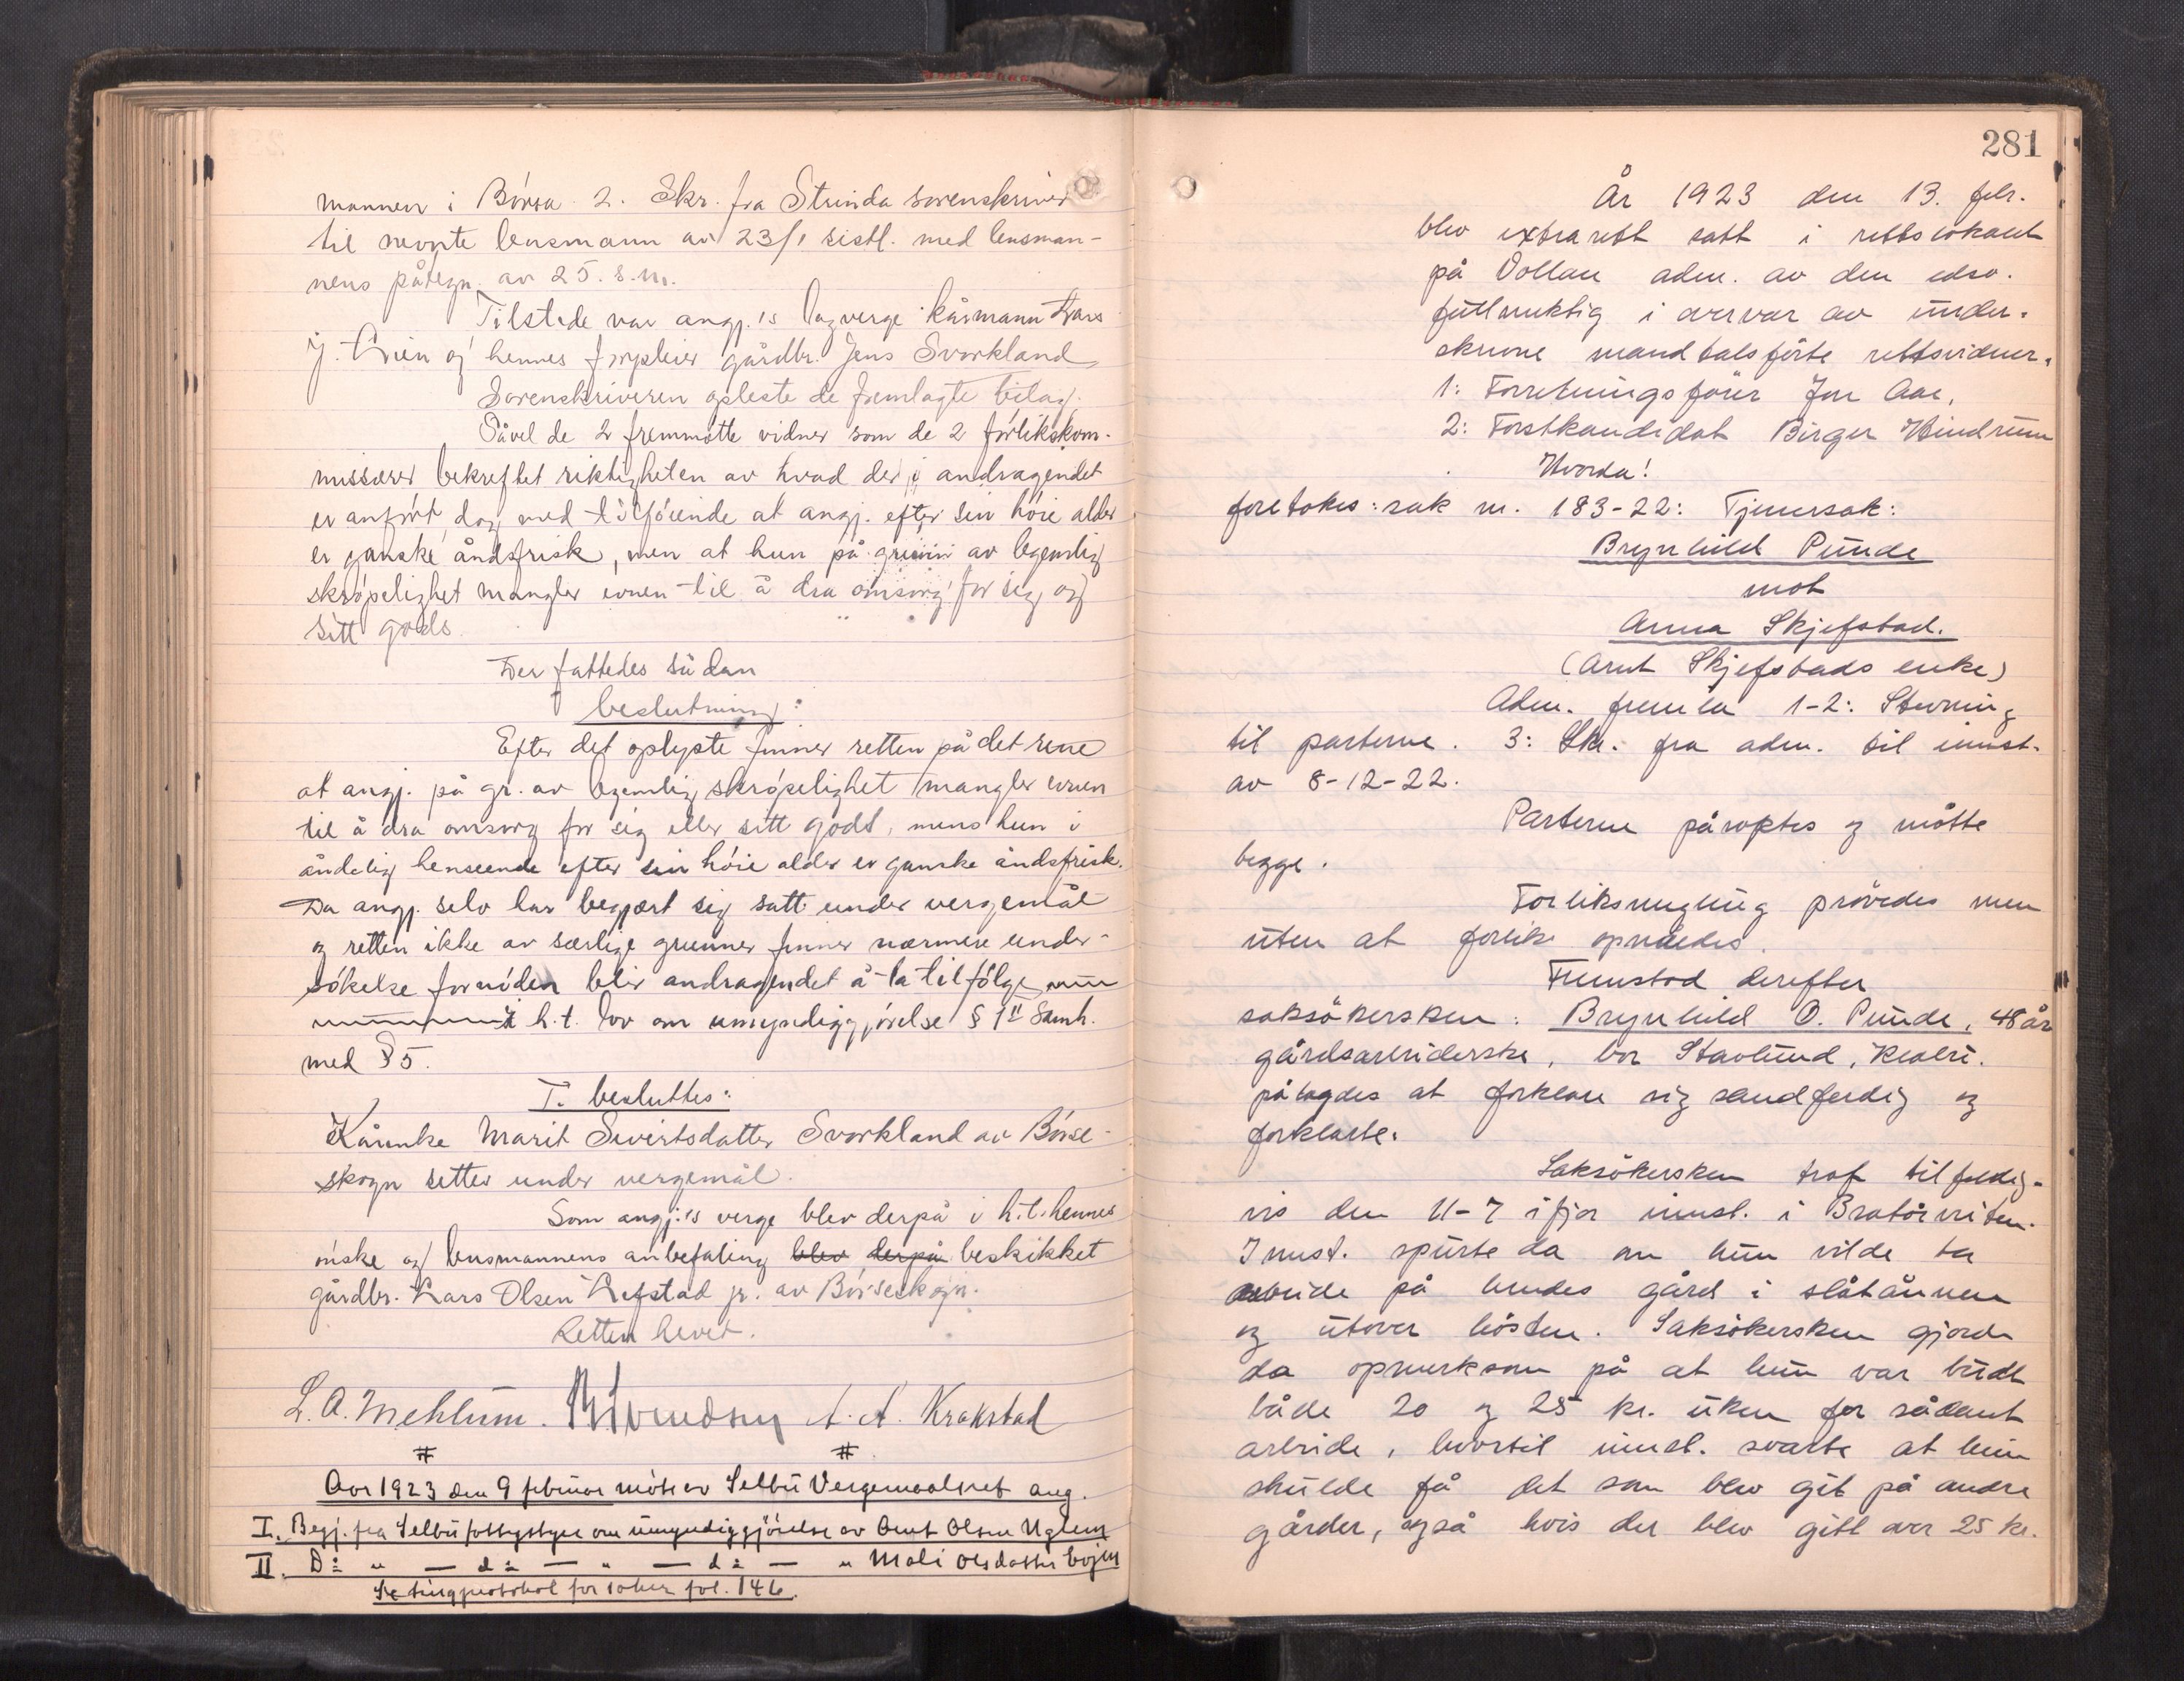 mannen i Börsa. 2. Skr. fra Strinda sorenskriver
til nevnte lensmann av 23/1 sistl. med lensman-
nens påtegn. av 25. s.m.
Tilstede var angj.'s lagverge kårmann Lars
J. Evien og hennes forpleier gårdbr. Jens Svorkland
Sorenskriveren opleste de fremlagte bilag.
Såvel de 2 fremmötte vidner som de 2 forlikskom-
missærer bekreftet riktigheten av hvad der i andragendet
er anfört, dog med tilföiende at angj. efter sin höie alder
er ganske åndsfrisk, men at hun på grunn av legemlig
skröpelighet mangler evnen til å dra omsorg for sig og
sitt gods.
Der fattedes sådan
beslutning:
Efter det oplyste finner retten på det rene
at angj. på gr. av legemlig skröpelighet mangler evnen
til å dra omsorg for sig eller sitt gods, mens hun i
åndelig henseende efter sin höie alder er ganske åndsfrisk.
Da angj. selv har begjært sig satt under vergemål
og retten ikke av særlige grunner finner nærmere under-
sökelse fornöden blir andragendet å ta tilfölge
i h.t. lov om umyndiggjörelse § 1 smh.
med § 5.
T. besluttes:
Kårenke Marit Sivertsdatter Svorkland av Börse-
skogn settes under vergemål.
Som angj.'s verge blev derpå i h.t. hennes
önske og lensmannens anbefaling blev derpå beskikket
gårdbr. Lars Olsen Lefstad jr. av Börseskogn.
Retten hevet.
L. A. Mehlum. A. A. Krokstad
# #
Aar 1923 den 9 februar möte av Selbu Vergemaalsret ang.
I. Begj. fra Selbu fattigstyre om umyndiggjörelse av Arnt Olsen Uglem
II. Do " — do — " — do — " Mali Olsdatter Evjen
Se tingprotokol for saker fol. 146.
281
År 1923 den 13. febr.
blev extrarett satt i rettslokalet
på Vollan adm. av den edsv.
fullmektig i overvær av under-
skrevne mandtalsförte rettsvidner.
1: Forretningsförer Jon Aae,
2: Forstkandidat Birger Hindrum
Hvorda!
foretokes: sak nr. 183-22: Tjenersak:
Brynhild Punde
mot
Anna Skjefstad.
(Arnt Skjefstads enke)
Adm. fremla 1-2: Stevning
til parterne. 3: Skr. fra adm. til innst.
av 8-12-22.
Parterne påroptes og mötte
begge.
Forliksmegling prövedes men
uten at forlik opnåedes.
Fremstod derefter
saksökersken: Brynhild O. Punde, 48 år
gårdsarbeiderske, bor Stavlund, Klæbu.
pålagdes at forklare sig sandferdig og
forklarte.
Saksökersken traf tilfeldig-
vis den 11-7 ifjor innst. i Bratörveiten.
Innst. spurte da om hun vilde ta
arbeide på hendes gård i slåtånnen
og utover hösten. Saksökersken gjorde
da opmerksom på at hun var budt
både 20 og 25 kr. uken for sådant
arbeide, hvortil innst. svarte at hun
skulde få det som blev git på andre
gårder, også hvis der blev gitt over 25 kr.